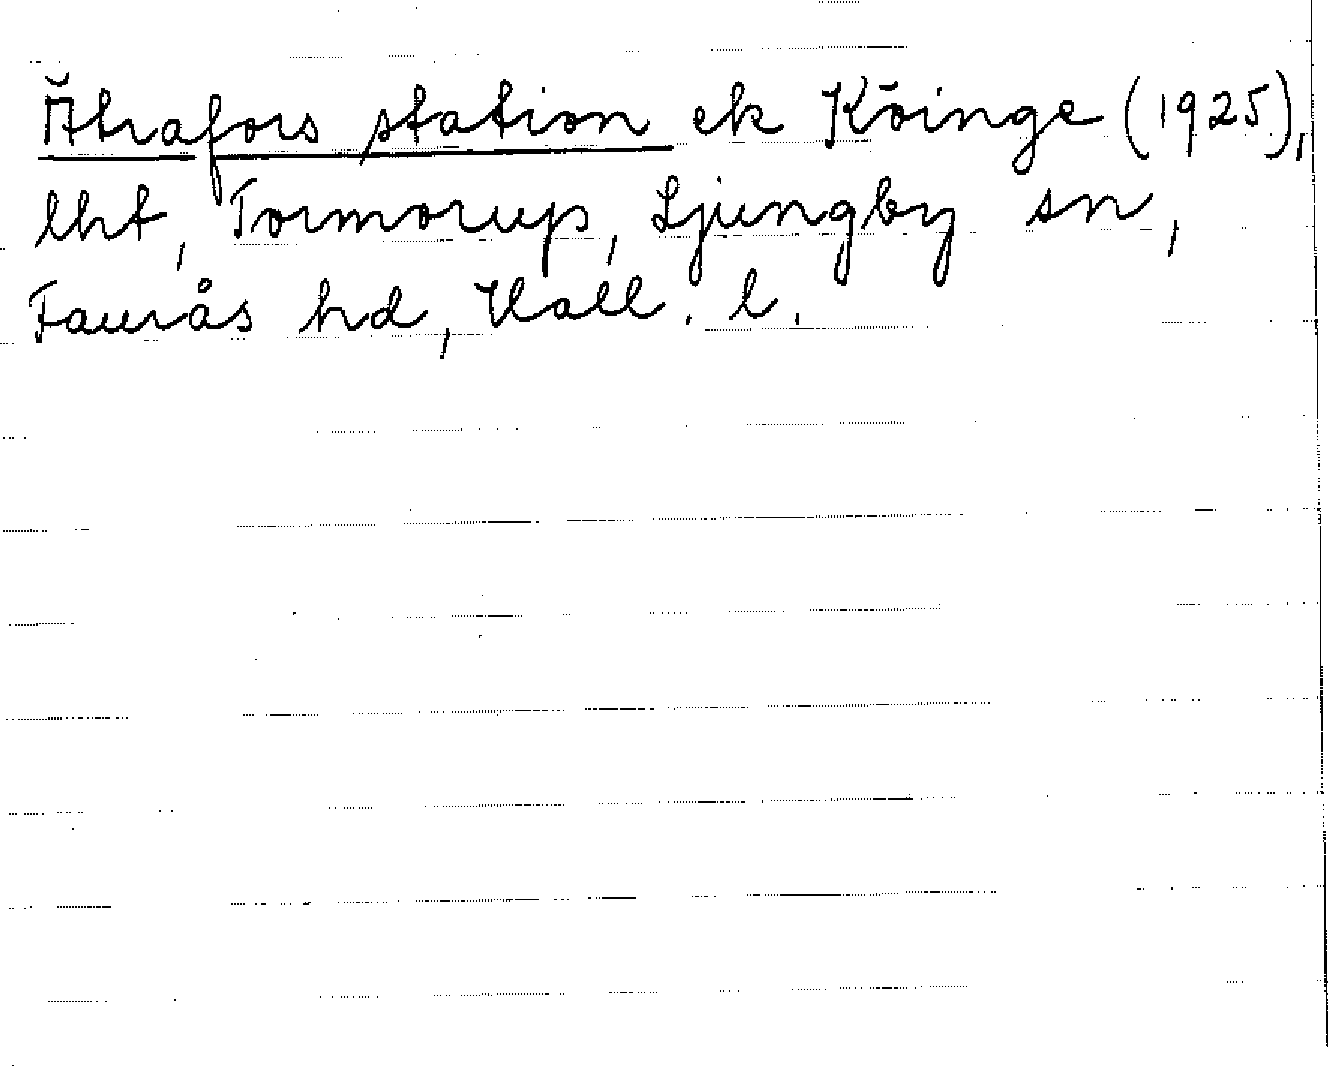 Ätrafors station ek Köinge (1925),
lht, Tormorup, Ljungby sn,
Faurås hd, Hall. l.